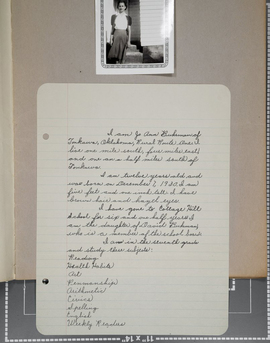 I am Jo Ann
Tonkawa, Oklahoma, Rural Route One. I
live one mile south, five miles east,
and one on a half miles south of
Tonkawa.
I am twelve years old and
was born on December 7, 1930. I am
five feet and one inch tall. I have
brown hair and hazel eyes.
I have gone to College Hill
School for six and one half years. I
am the daughter of Daniel
who is a member of the school board.
I am in the seventh grade
and study these subjects:
Reading
Health Habits
Art
Penmanship
Arithmetic
Civics
Spelling
English
Weekly Readers
11" x 14"